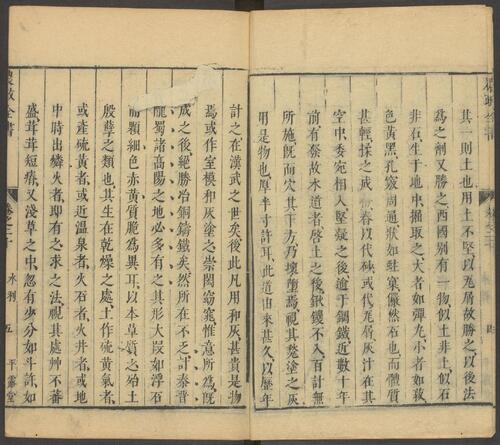 其一則土也用土不堅以瓦屑故勝之以後法
為之劑又勝之西國別有一物似土非土似石
非石生于地中掘取之大者如彈丸小者如菽
色黃黑孔竅周通狀如蛀窠儼然石也而體質
甚輕揉之成粉舂以代砂或代瓦屑灰汁在其
空中委宛相入堅凝之後逾于鋼鐵近數十年
前有發故水道者啓土之後鍬钁不入百計無
所施既而穴其下方乃壞墮焉視其甃塗之灰
用是物也厚半寸許耳此道由來甚久以歷年
計之在漢武之世矣後此凡用和灰甚貴是物
焉或作室模和灰塗之崇閎窈窕惟意所為既
成之後絕勝冶銅鑄鐵矣然所在不乏計秦晉
隴蜀諸高陽之地必多有之其形大叚如浮石
而顆細色赤黃質脆為異耳以本草質之殆土
殷孽之類也其生在乾燥之處土作硫黃氣者
或產硫黃者或近溫泉者火石者火井者或地
中時出燐火者即有之求之法視其處艸不蕃
盛茸茸短瘠又淺草之中忽有少分如斗許如
農政全書 卷之二十 水利 五 平露堂